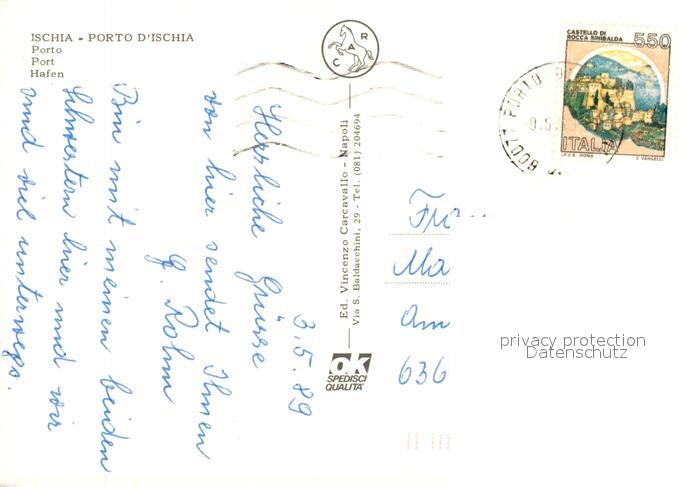 ISCHIA - PORTO D'ISCHIA
Porto
Port
Hafen
CASTELLO DI
ROCCA SINIBALDA
550
ITALIA
I.P.Z.S. ROMA
E. VANGELLI
80077 PORTO D
C A R
Ed. Vincenzo Carcavallo - Napoli
Via S. Baldacchini, 29 - Tel. (081) 204694
OK
SPEDISCI
QUALITA'
3.5.89
Herzliche Grüsse
von hier sendet Ihnen
G. Rohm
Bin mit meinen beiden
Schwestern hier und wir
sind viel unterwegs.
Fr
Ma
Am
636
privacy protection
Datenschutz